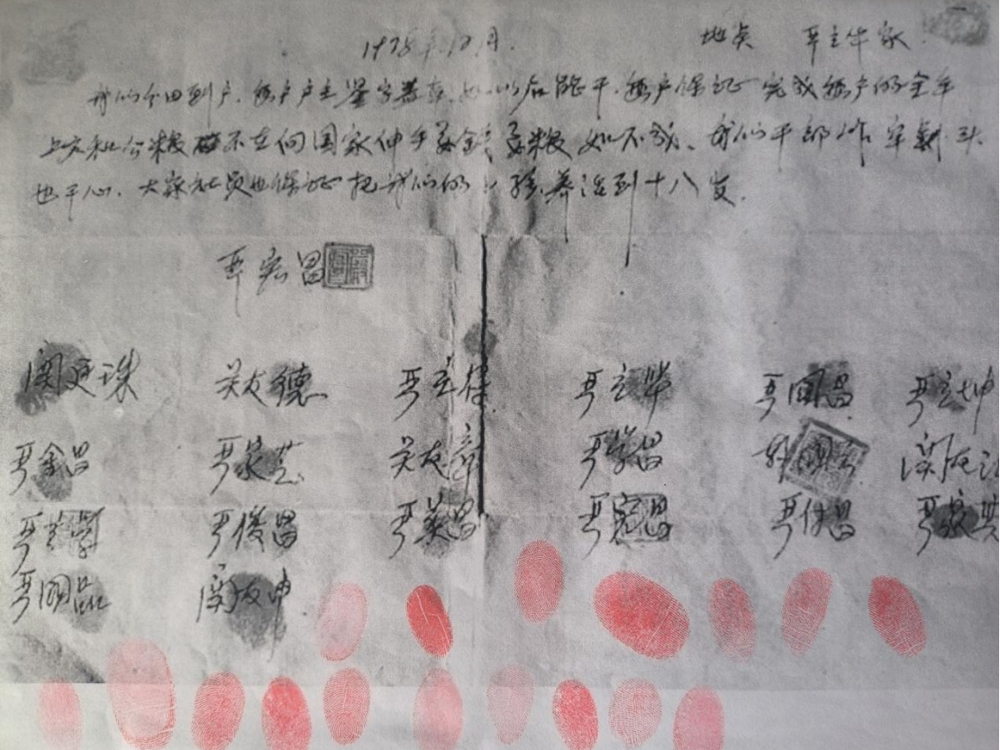 1978年12月. 地点 严立华家.
我们分田到户,每户户主鉴字盖章,如以后能干,每户保证完成每户的全年
上交和公粮 不在向国家伸手要钱要粮 如不成,我们干部作牢剎头
也干心,大家社员也保证把我们的小孩养活到十八岁.
严宏昌
关廷珠 关友德 严立符 严立华 严国昌 严立坤
严金昌 严家芝 关友章 严学昌 韩国云 关友江
严立学 严俊昌 严美昌 严宏昌 严付昌 严家其
严国品 关友申